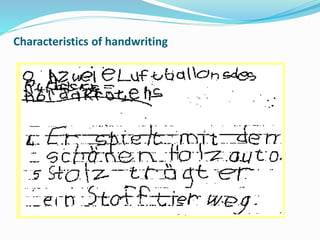 Characteristics of handwriting
zwei e Luftballons des
4 Er spielt mit dem
schönen Holzauto.
5 Stolz trägt er
ein Stofftier weg.